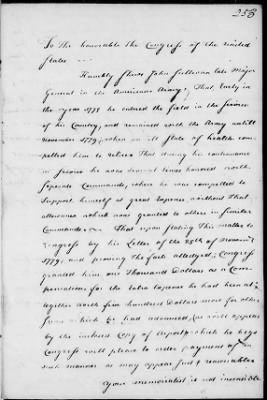 258
To the honorable the Congress of the United
States
Humbly Shews John Sullivan late Major
General in the American Army, That, Early in
the year 1775 he entered the field in the service
of his Country, and remained with the Army untill
November 1779, when an ill State of health com
pelled him to retire, That during his continuance
in service he was several times honored with
Seperate Commands, where he was compelled to
Support himself at great expence, without that
allowance which was granted to others in similar
Commands, That upon stating this matter to
Congress by his Letter of the of
1779, and proving the facts alledged, Congress
granted him one Thousand Dollars as a Com
pensation for the Extra expences he had been at,
together with five hundred Dollars more for other
sums which he had advanced, as will appear
by the inclosed Copy of report, which he begs
Congress will please to order payment of in
such manner as may appear Just & reasonable
Your memorialist is not insensible